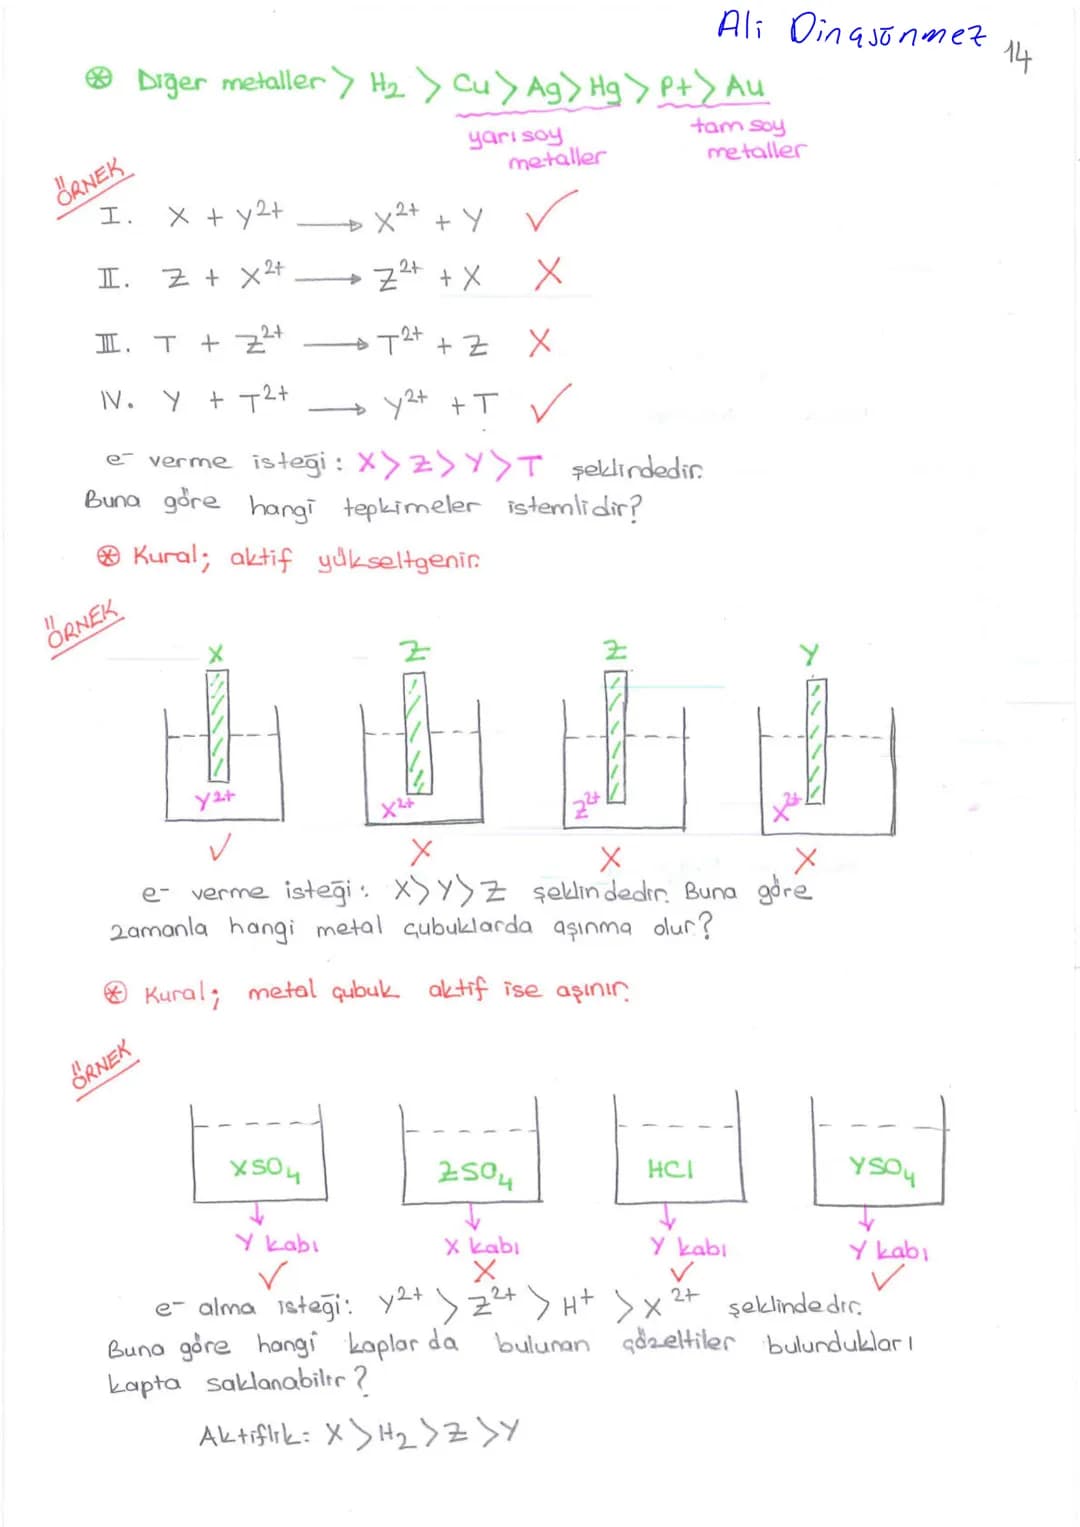 Ali Dinasönmez
14
⊛ Diğer metaller > H₂ > Cu > Ag > Hg > Pt > Au
yarı soy metaller
tam soy metaller
ÖRNEK
I. X + Y²⁺ → X²⁺ + Y ✓
II. Z + X²⁺ → Z²⁺ + X X
III. T + Z²⁺ → T²⁺ + Z X
IV. Y + T²⁺ → Y²⁺ + T ✓
e⁻ verme isteği: X > Z > Y > T şeklindedir.
Buna göre hangi tepkimeler istemlidir?
⊛ Kural; aktif yükseltgenir.
ÖRNEK
X Z Z Y
Y²⁺ X²⁺ Z²⁺ X²⁺
✓ X X X
e⁻ verme isteği: X > Y > Z şeklindedir. Buna göre
zamanla hangi metal çubuklarda aşınma olur?
⊛ Kural; metal çubuk aktif ise aşınır.
ÖRNEK
XSO₄ ZSO₄ HCl YSO₄
Y kabı X kabı Y kabı Y kabı
✓ X ✓ ✓
e⁻ alma isteği: Y²⁺ > Z²⁺ > H⁺ > X²⁺ şeklindedir.
Buna göre hangi kaplar da bulunan çözeltiler bulundukları
kapta saklanabilir?
Aktiflik: X > H₂ > Z > Y